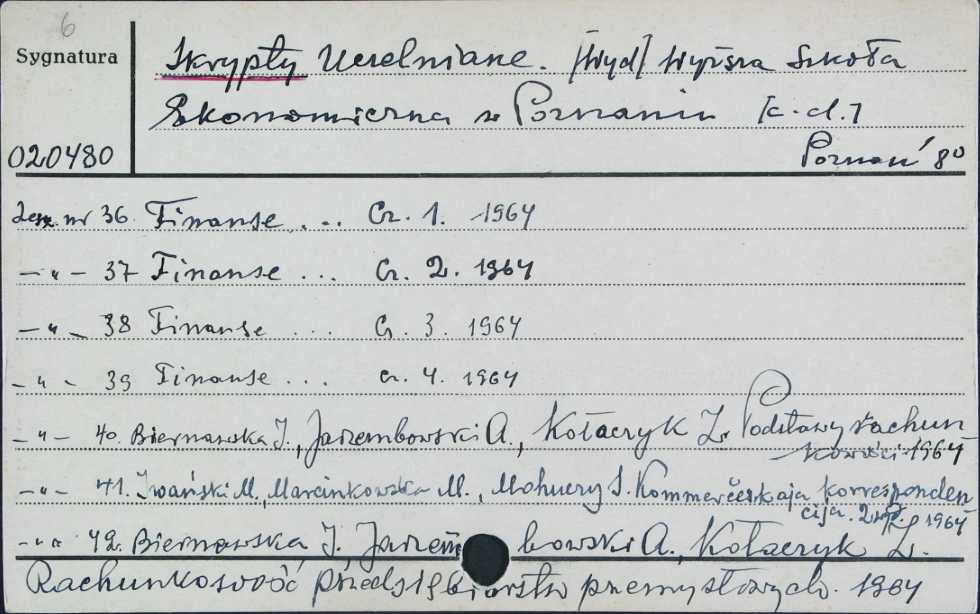 6
Sygnatura
Skrypty Uczelniane. [Wyd] Wyższa Szkoła
Ekonomiczna w Poznaniu [c.d.]
020480
Poznań 8°
zesz. nr 36. Finanse ... Cz. 1. 1964
— " — 37 Finanse ... Cz. 2. 1964
— " — 38 Finanse ... Cz. 3. 1964
— " — 39 Finanse ... cz. 4. 1964
— " — 40. Biernawska J., Jarzembowski A., Kołaczyk Z. Podstawy rachun
kowości 1964
— " — 41. Iwański M., Marcinkowska M., Mohuczy S. Kommerčeskaja korresponden
cija. 1964
— " — 42. Biernawska J., Jarzembowski A., Kołaczyk Z.
Rachunkowość przedsiębiorstw przemysłowych. 1964